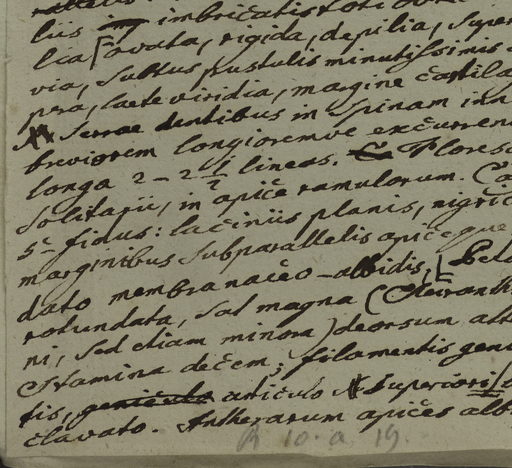 liis imbricatis toti
lia ovata, rigida, depilia, super
via, subtus pustulis minutissimis
pera, laete viridia, margine cartila
Serrae dentibus in spinam inn
breviorem longioremve excurren
longa 2-2 1/2 lineas. Floresc
solitarii, in apice ramulorum. Ca
5-fidus: laciniis planis, nigric
marginibus subparallelis apice que
dato membranaceo-albidis, Peta
rotundata, sat magna (Cheiranth
ni, sed etiam minora) deorsum att
Stamina decem; filamentis geni
tis, geniculo articulo superiori
clavato. Antherarum apices alb
R 10. a 19.